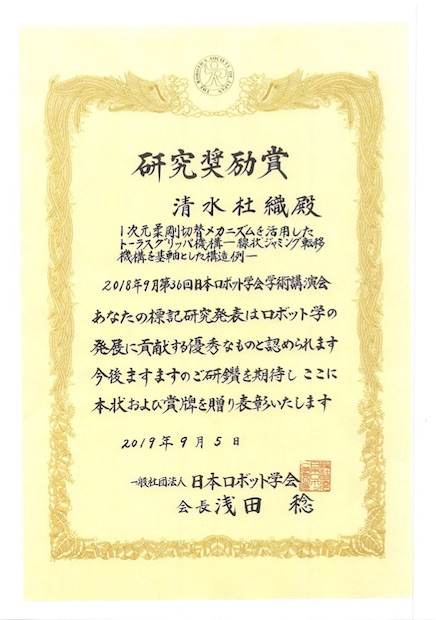 THE ROBOTICS SOCIETY OF JAPAN
研究奨励賞
清水杜織殿
1次元柔剛切替メカニズムを活用した
トーラスグリッパ機構ー線状ジャミング転移
機構を基軸とした構造例ー
2018年9月第36回日本ロボット学会学術講演会
あなたの標記研究発表はロボット学の
発展に貢献する優秀なものと認められます
今後ますますのご研鑽を期待し ここに
本状および賞牌を贈り表彰いたします
2019年9月5日
一般社団法人 日本ロボット学会
会長 浅田 稔